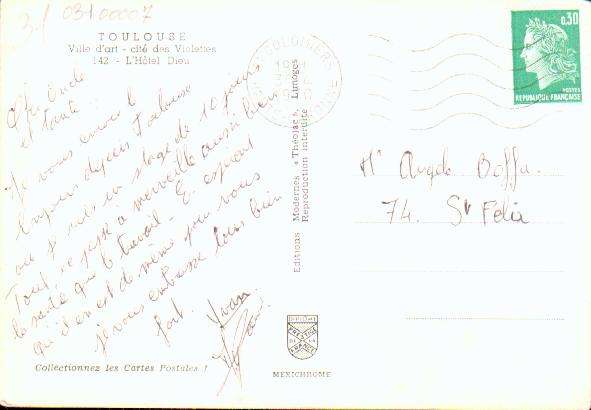 3-1 03100007
TOULOUSE
Ville d'art - cité des Violettes
142 - L'Hôtel Dieu
Cher Oncle
et tante
Je vous envoie le
bonjour depuis Toulouse
où je suis en stage de 10 jours
Tout se passe à merveille aussi bien
la santé que le travail - En espérant
qu'il en est de même pour vous
je vous embrasse tous bien
fort. Yvan.
Collectionnez les Cartes Postales !
Editions Modernes « Théojac », Limoges
Reproduction interdite
COLOMIERS
HTE GARONNE
0,30
POSTES
REPUBLIQUE FRANÇAISE
Mr Angelo Boffa.
74. St Felix
DIPLOME
PRESTIGE
DE LA
FRANCE
MEXICHROME